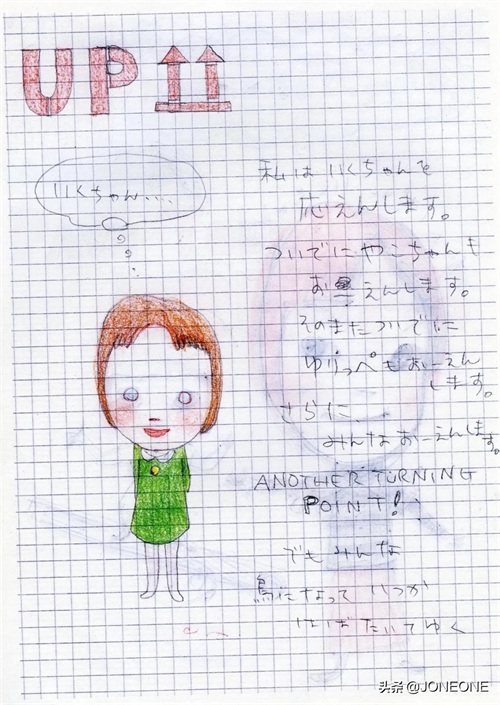 UP
いくちゃん....
私はいくちゃんを
応えんします。
ついでにやこちゃんも
お えんします。
そのまたついでに
ゆりっぺもおーえん
します。
さらに
みんなおーえんします。
ANOTHER TURNING
POINT!
でもみんな
鳥になって いつか
はばたいてゆく
头条 @JONEONE